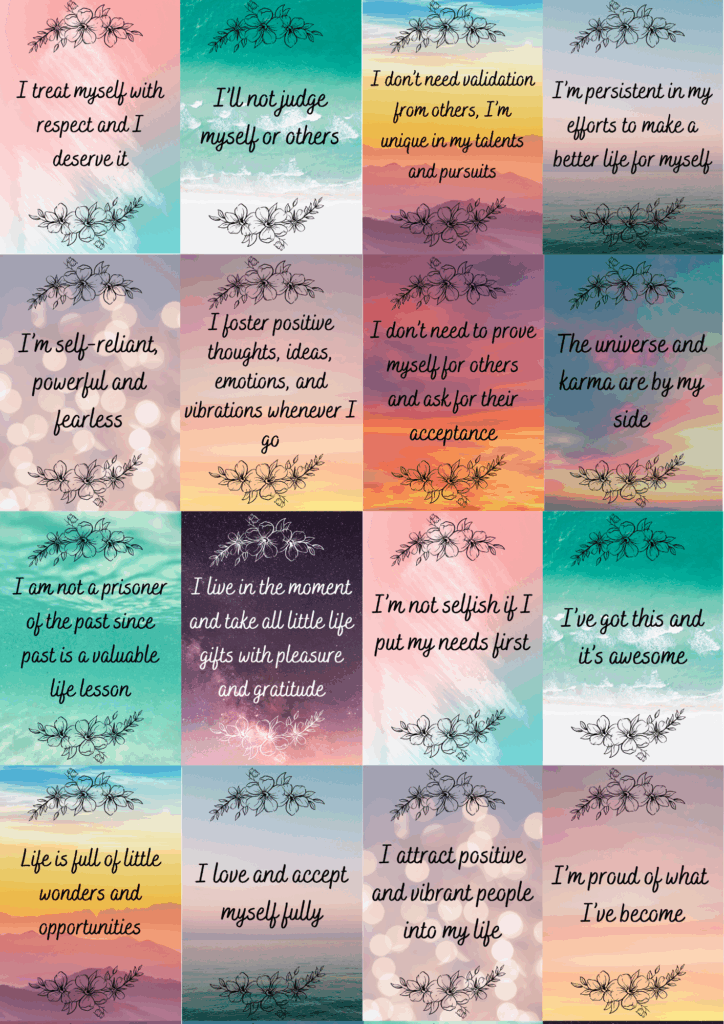 I treat myself with
respect and I
deserve it
I'll not judge
myself or others
I don't need validation
from others, I'm
unique in my talents
and pursuits
I'm persistent in my
efforts to make a
better life for myself
I'm self-reliant,
powerful and
fearless
I foster positive
thoughts, ideas,
emotions, and
vibrations whenever I
go
I don't need to prove
myself for others
and ask for their
acceptance
The universe and
karma are by my
side
I am not a prisoner
of the past since
past is a valuable
life lesson
I live in the moment
and take all little life
gifts with pleasure
and gratitude
I'm not selfish if I
put my needs first
I've got this and
it's awesome
Life is full of little
wonders and
opportunities
I love and accept
myself fully
I attract positive
and vibrant people
into my life
I'm proud of what
I've become